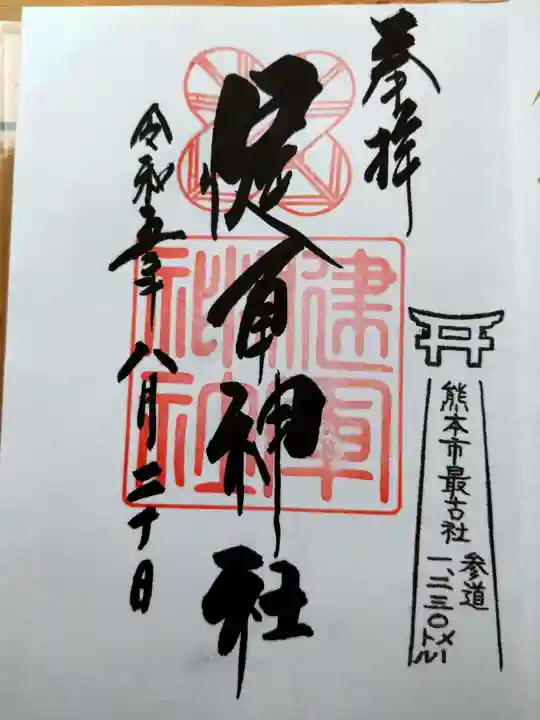 奉拝
健軍神社
令和五年八月二十日
熊本市最古社
参道
一、二三〇メートル